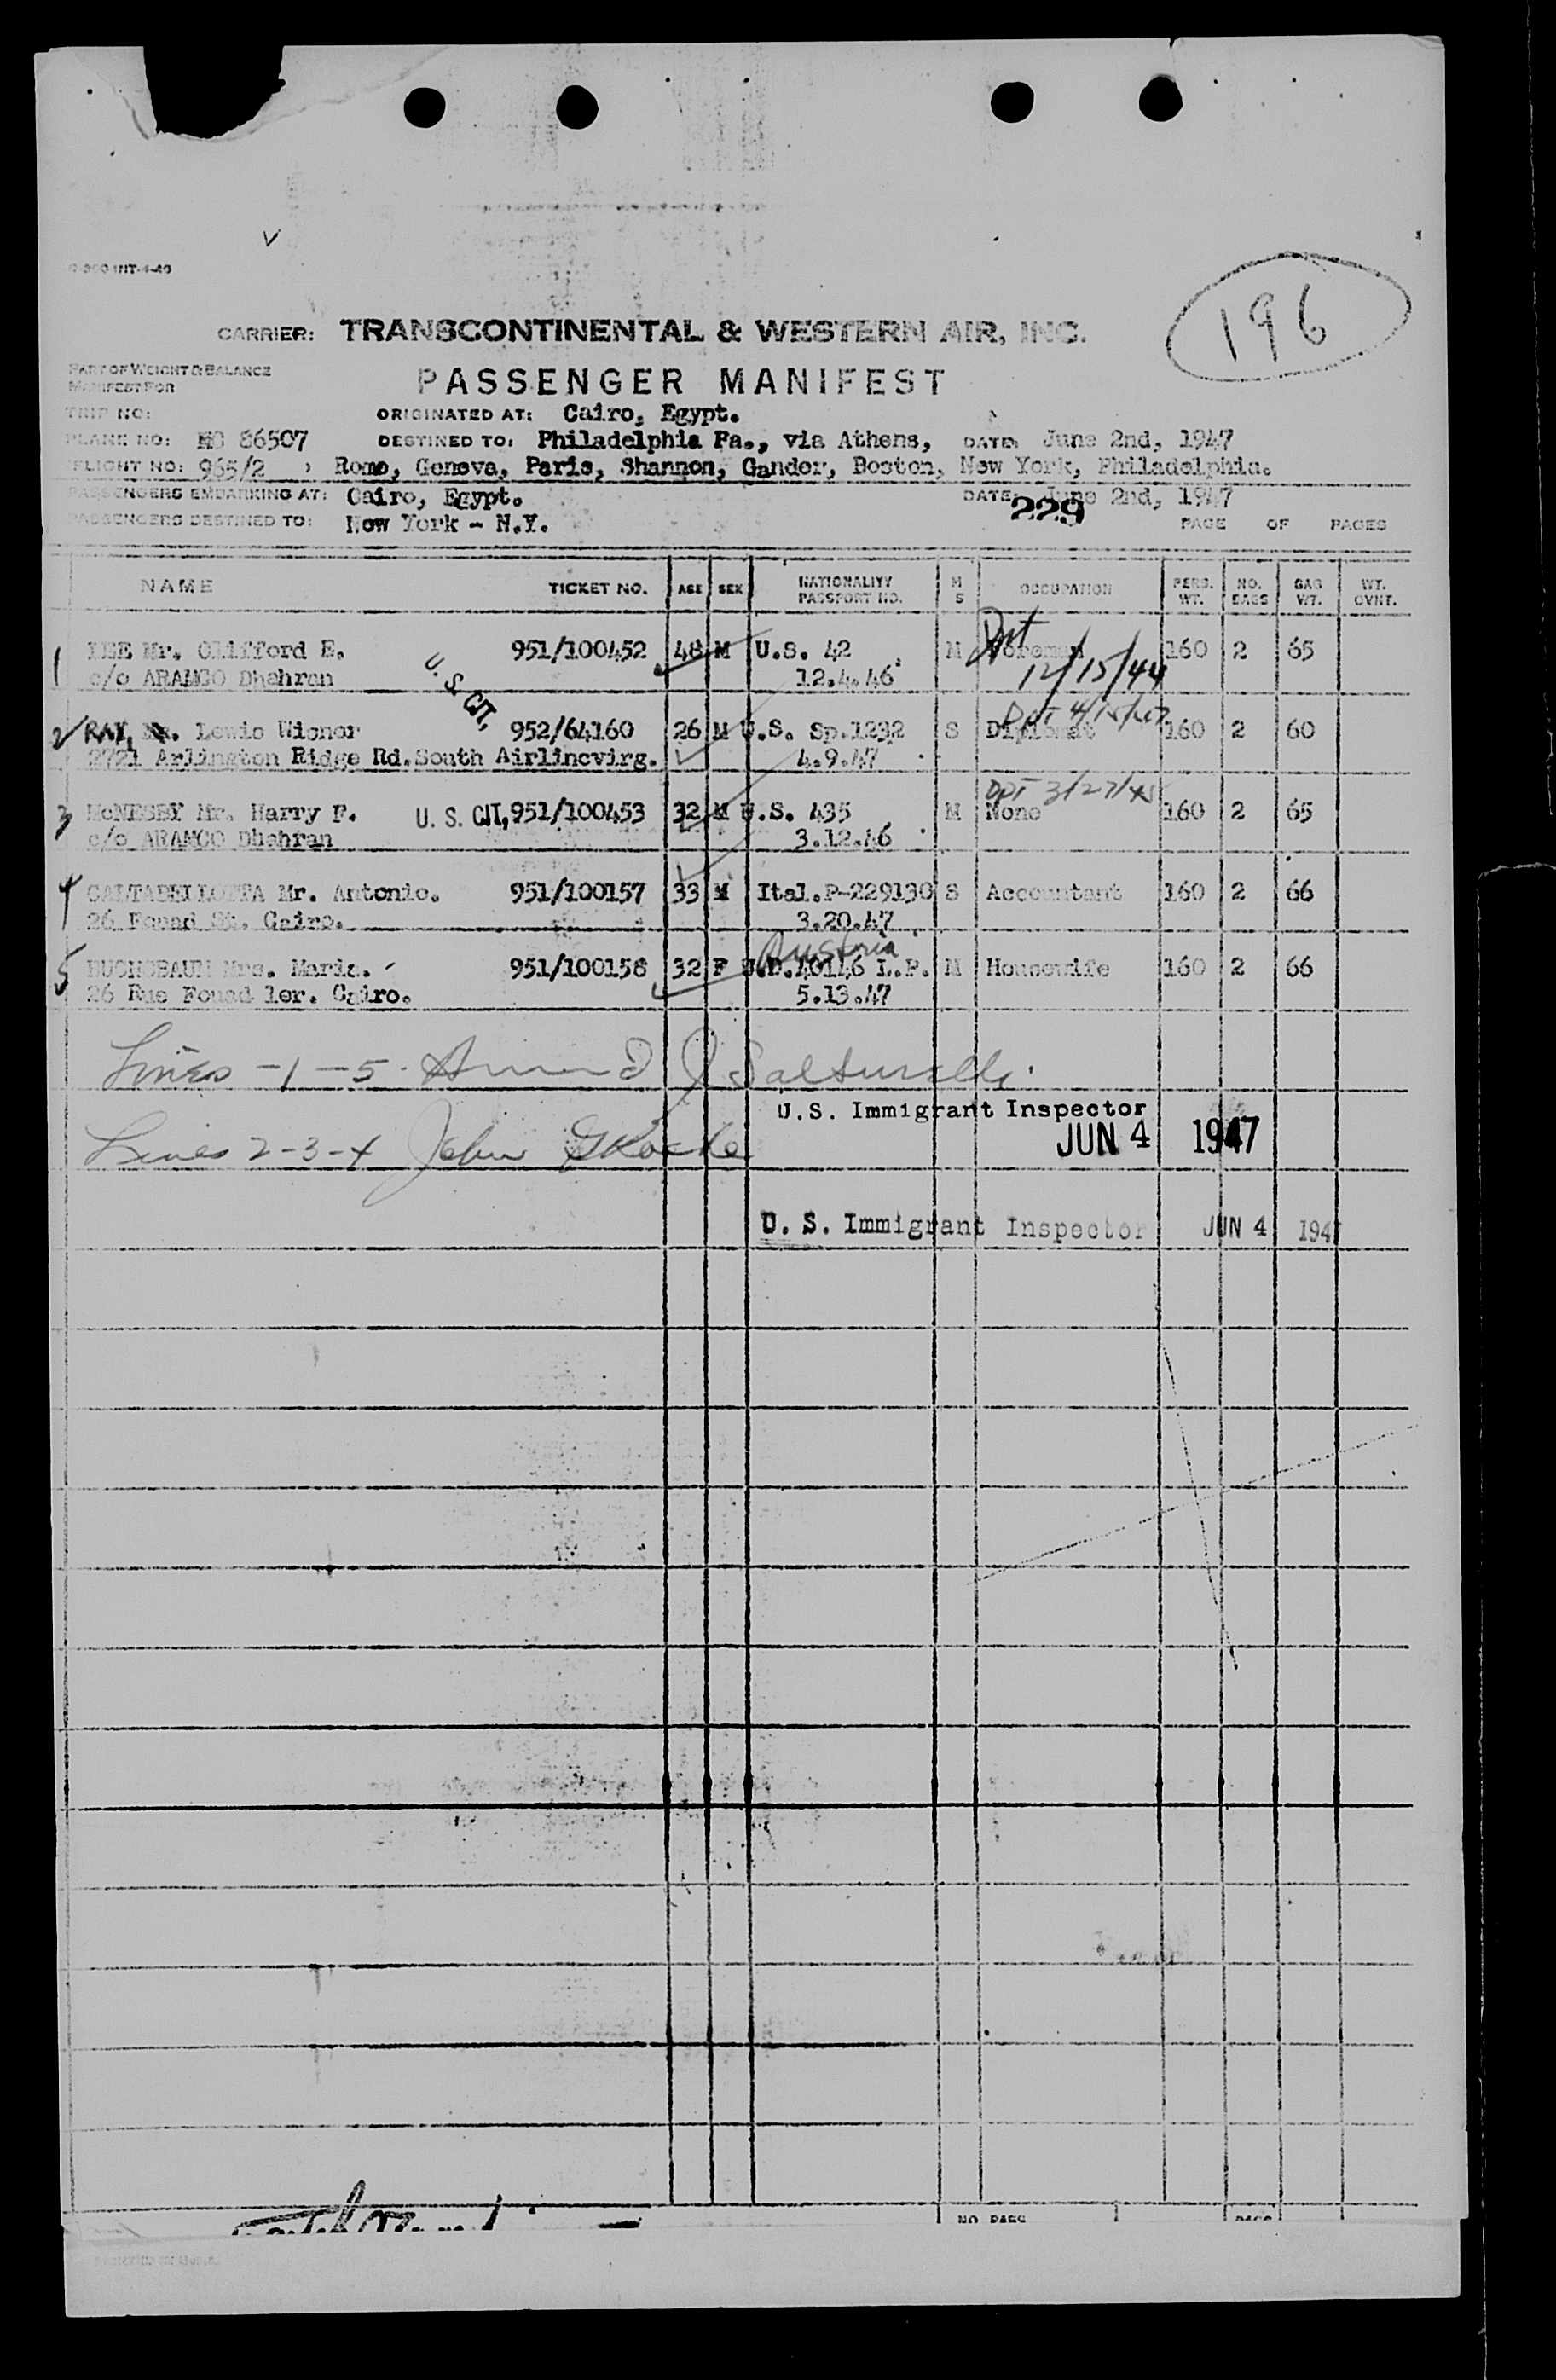 196
CARRIER: TRANSCONTINENTAL & WESTERN AIR, INC.
PART OF WEIGHT & BALANCE
MANIFEST FOR
PASSENGER MANIFEST
TRIP NO: ORIGINATED AT: Cairo, Egypt.
PLANE NO: 86507 DESTINED TO: Philadelphia Pa., via Athens, DATE: June 2nd, 1947
FLIGHT NO: 965/2 Rome, Geneva, Paris, Shannon, Gander, Boston, New York, Philadelphia.
PASSENGERS EMBARKING AT: Cairo, Egypt. DATE: June 2nd, 1947
229
PASSENGERS DESTINED TO: New York - N.Y. PAGE OF PAGES
NAME TICKET NO. AGE SEX NATIONALITY PASSPORT NO. M S OCCUPATION PERS. WT. NO. BAGS BAG WT. WT. OVHT.
1 LEE Mr. Clifford E. 951/100452 48 M U.S. 42 M Foreman 160 2 65
c/o ARAMCO Dhahran U.S. CIT, 12.4.46 12/15/44
2 RAY, Lewis Wisner 952/64160 26 M U.S. Sp.1232 S Diplomat 160 2 60
2721 Arlington Ridge Rd.South Airlincvirg. 4.9.47
DPT 3/27/45
3 McNESBY Mr. Harry F. U.S. CIT, 951/100453 32 M U.S. 435 M None 160 2 65
c/o ARAMCO Dhahran 3.12.46
4 CALTABELLOTTA Mr. Antonio. 951/100157 33 M Ital.P-229130 S Accountant 160 2 66
26 Fouad St. Cairo. 3.20.47
Austria
5 Mrs. Maria. 951/100158 32 F 40146 L.P. M Housewife 160 2 66
26 Rue Fouad 1er. Cairo. 5.13.47
Lines -1-5-
U.S. Immigrant Inspector
JUN 4 1947
Lines 2-3-4 John
U. S. Immigrant Inspector JUN 4 194
NO. PASS